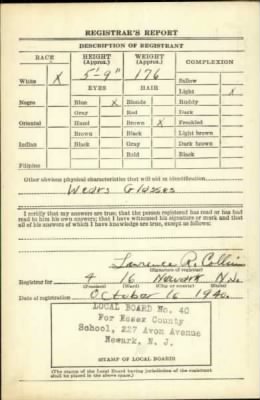 REGISTRAR'S REPORT
DESCRIPTION OF REGISTRANT
RACE HEIGHT (Approx.) WEIGHT (Approx.) COMPLEXION
White X 5'-9" 176 Sallow
Light X
EYES HAIR
Negro Blue X Blonde Ruddy
Gray Red Dark
Oriental Hazel Brown X Freckled
Brown Black Light brown
Indian Black Gray Dark brown
Bald Black
Filipino
Other obvious physical characteristics that will aid in identification
Wears Glasses
I certify that my answers are true; that the person registered has read or has had
read to him his own answers; that I have witnessed his signature or mark and that
all of his answers of which I have knowledge are true, except as follows:
Lawrence R. Collins
(Signature of registrar)
Registrar for 4 16 Newark N.J.
(Precinct) (Ward) (City or county) (State)
Date of registration October 16 1940.
LOCAL BOARD No. 40
For Essex County
School, 227 Avon Avenue
Newark, N. J.
STAMP OF LOCAL BOARD
(The stamp of the Local Board having jurisdiction of the registrant
shall be placed in the above space.)